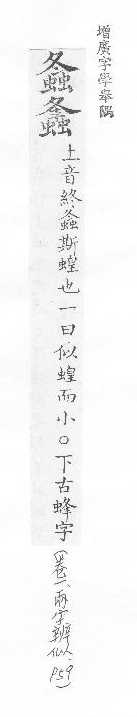 增廣字學舉隅
螽 上音終螽斯蝗也一曰似蝗而小○下古蜂字(卷一、兩字辨似、P59)